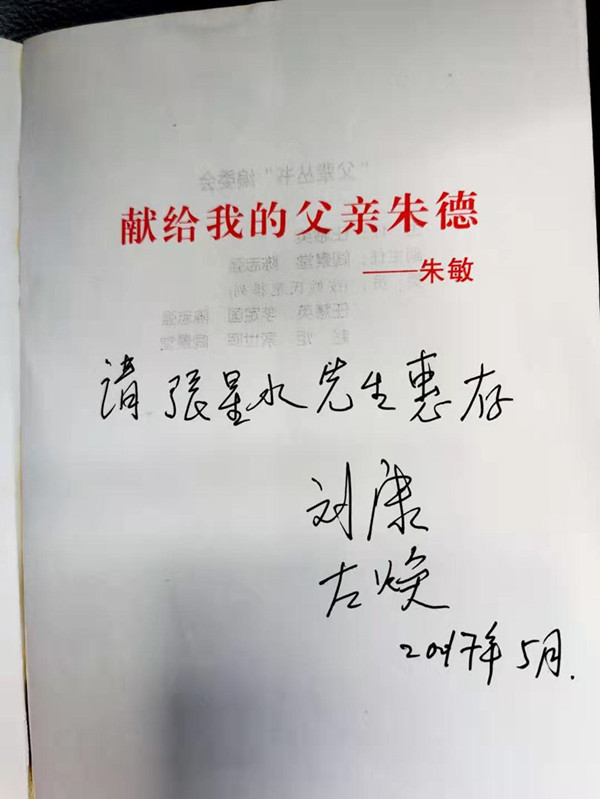 献给我的父亲朱德
——朱敏
请張星水先生惠存
刘康
2017年5月.